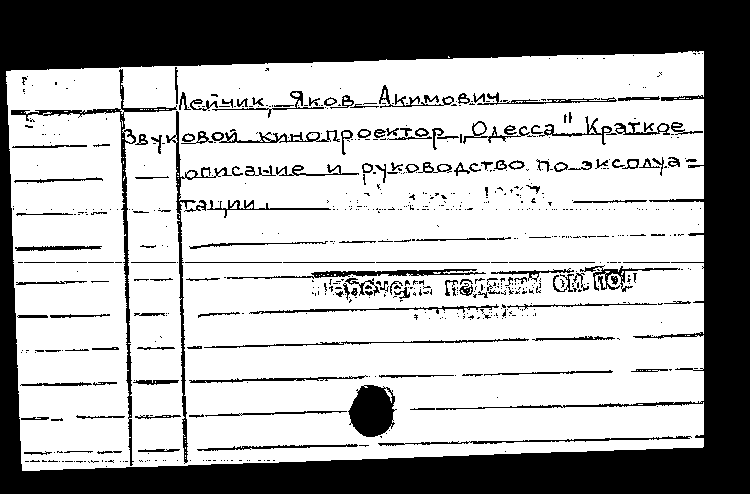 Лейчик, Яков Акимович
Звуковой кинопроектор „Одесса" Краткое
описание и руководство по эксплуа=
тации.
Перечень изданий см. под